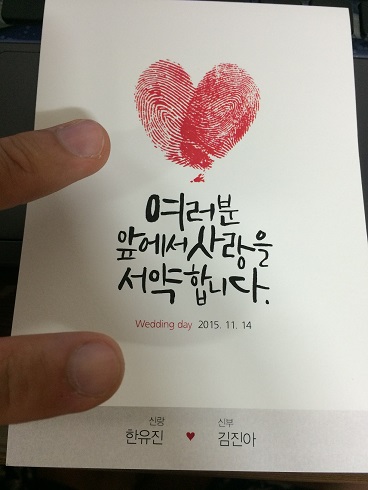 여러분
앞에서 사랑을
서약합니다.
Wedding day 2015. 11. 14
신랑 신부
한유진 ♥ 김진아